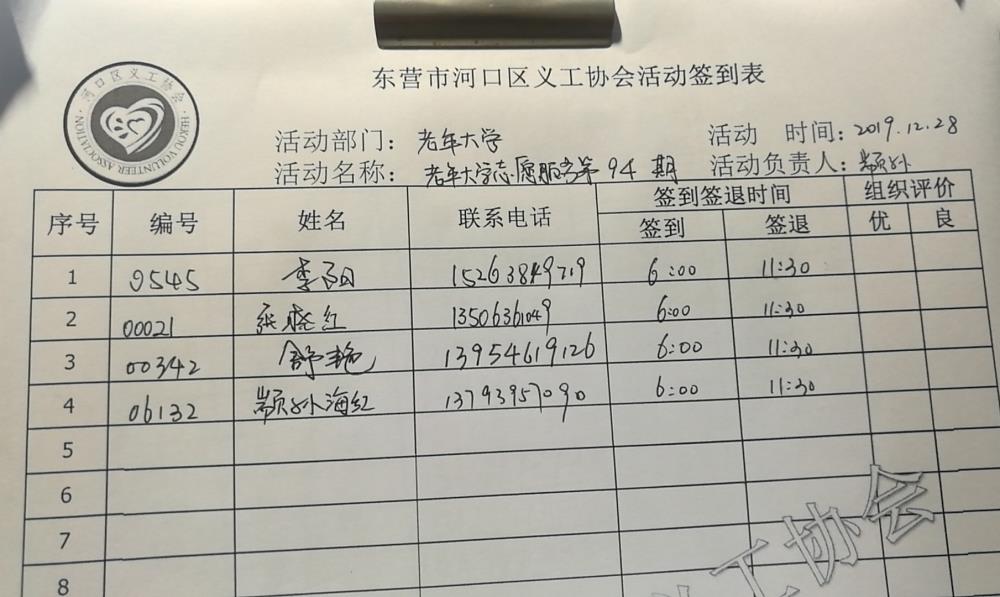 东营市河口区义工协会活动签到表
河口区义工协会
HEKOU VOLUNTEER ASSOCIATION
活动部门: 老年大学 活动 时间: 2019.12.28
活动名称: 老年大学志愿服务第94期 活动负责人:
序号 编号 姓名 联系电话 签到签退时间 组织评价
签到 签退 优 良
1 0545 李阳 15263849719 6:00 11:30
2 00021 张晓红 13506361049 6:00 11:30
3 00342 舒艳 13954619126 6:00 11:30
4 06132 海红 13793957090 6:00 11:30
5
6
7
8
工协会